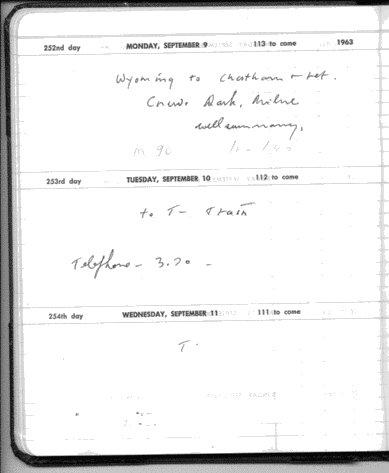 252nd day MONDAY, SEPTEMBER 9 113 to come 1963
Wyoming to Chatham + ret.
Dark, Milne
well summary,
M 90
253rd day TUESDAY, SEPTEMBER 10 112 to come
to T- Train
Telephone - 3.20 -
254th day WEDNESDAY, SEPTEMBER 11 111 to come
T.